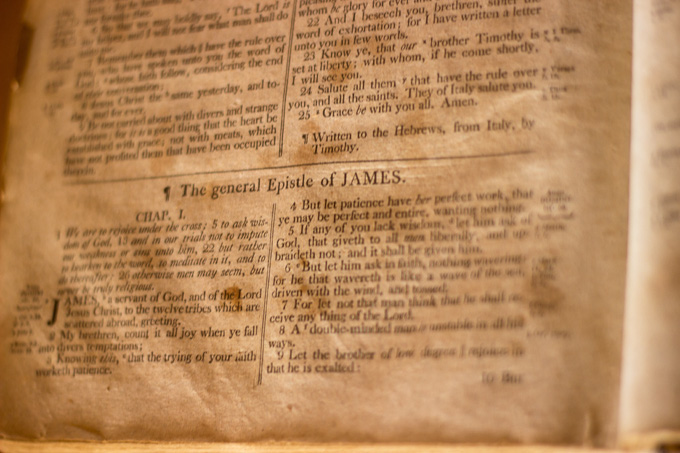 The Lord is
may boldly say,
and I will not fear what man shall do
unto me.
Remember them which have the rule over
you, who have spoken unto you the word of
God: whose faith follow, considering the end
Jesus Christ the same yesterday, and to-
day, and for ever.
Be not carried about with divers and strange
for it is a good thing that the heart be
established with grace; not with meats, which
have not profited them that have been occupied
therein.
whom be glory for ever and
22 And I beseech you, brethren, suffer the
word of exhortation; for I have written a letter
unto you in few words.
23 Know ye, that our brother Timothy is
set at liberty; with whom, if he come shortly,
I will see you.
24 Salute all them that have the rule over
you, and all the saints. They of Italy salute you.
25 Grace be with you all. Amen.
¶ Written to the Hebrews, from Italy, by
Timothy.
¶ The general Epistle of JAMES.
CHAP. I.
1 We are to rejoice under the cross; 5 to ask wis-
dom of God, 13 and in our trials not to impute
our weakness or sins unto him, 22 but rather
to hearken to the word, to meditate in it, and to
do thereafter; 26 otherwise men may seem, but
never be truly religious.
JAMES, a servant of God, and of the Lord
Jesus Christ, to the twelve tribes which are
scattered abroad, greeting.
2 My brethren, count it all joy when ye fall
into divers temptations;
3 Knowing this, that the trying of your faith
worketh patience.
4 But let patience have her perfect work, that
ye may be perfect and entire, wanting nothing.
5 If any of you lack wisdom, let him ask of
God, that giveth to all men liberally, and up-
braideth not; and it shall be given him.
6 But let him ask in faith, nothing wavering:
for he that wavereth is like a wave of the sea,
driven with the wind, and tossed.
7 For let not that man think that he shall re-
ceive any thing of the Lord.
8 A double-minded man is unstable in all his
ways.
9 Let the brother of low degree rejoice in
that he is exalted:
10 But